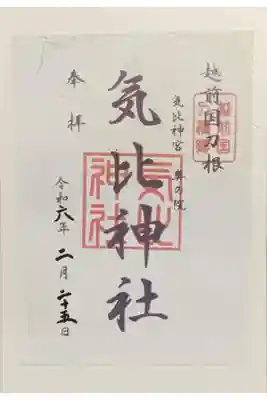 越前国刀根
気比神宮 奥の院
気比神社
奉拝
令和六年 二月 二十五日
気比神社